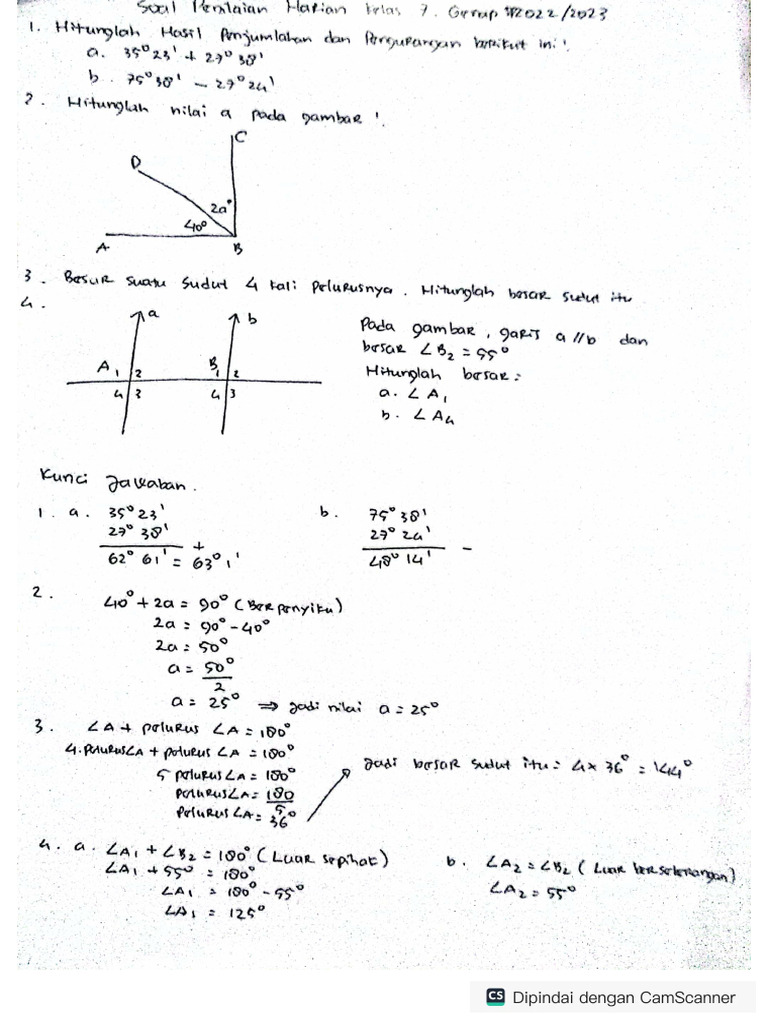 Soal Penilaian Harian kelas 7. Genap 2022/2023
1. Hitunglah Hasil Penjumlahan dan Pengurangan berikut ini!
a. 35° 23' + 27° 38'
b. 75° 38' - 27° 24'
2. Hitunglah nilai a pada gambar!
C
D
2a°
40°
A B
3. Besar suatu sudut 4 kali pelurusnya. Hitunglah besar sudut itu
4.
a b
A 1 2 B 1 2
4 3 4 3
Pada gambar, garis a // b dan
besar ∠B₂ = 55°
Hitunglah besar:
a. ∠A₁
b. ∠A₄
Kunci Jawaban.
1. a. 35° 23'
27° 38'
+
62° 61' = 63° 1'
b. 75° 38'
27° 24'
-
48° 14'
2. 40° + 2a = 90° (Berpenyiku)
2a = 90° - 40°
2a = 50°
a = 50°
2
a = 25° ⇒ jadi nilai a = 25°
3. ∠A + pelurus ∠A = 180°
4. pelurus ∠A + pelurus ∠A = 180°
5 pelurus ∠A = 180°
pelurus ∠A = 180
5
pelurus ∠A = 36°
Jadi besar sudut itu = 4 x 36° = 144°
4. a. ∠A₁ + ∠B₂ = 180° (Luar sepihak)
∠A₁ + 55° = 180°
∠A₁ = 180° - 55°
∠A₁ = 125°
b. ∠A₂ = ∠B₂ (Luar berseberangan)
∠A₂ = 55°
CS Dipindai dengan CamScanner